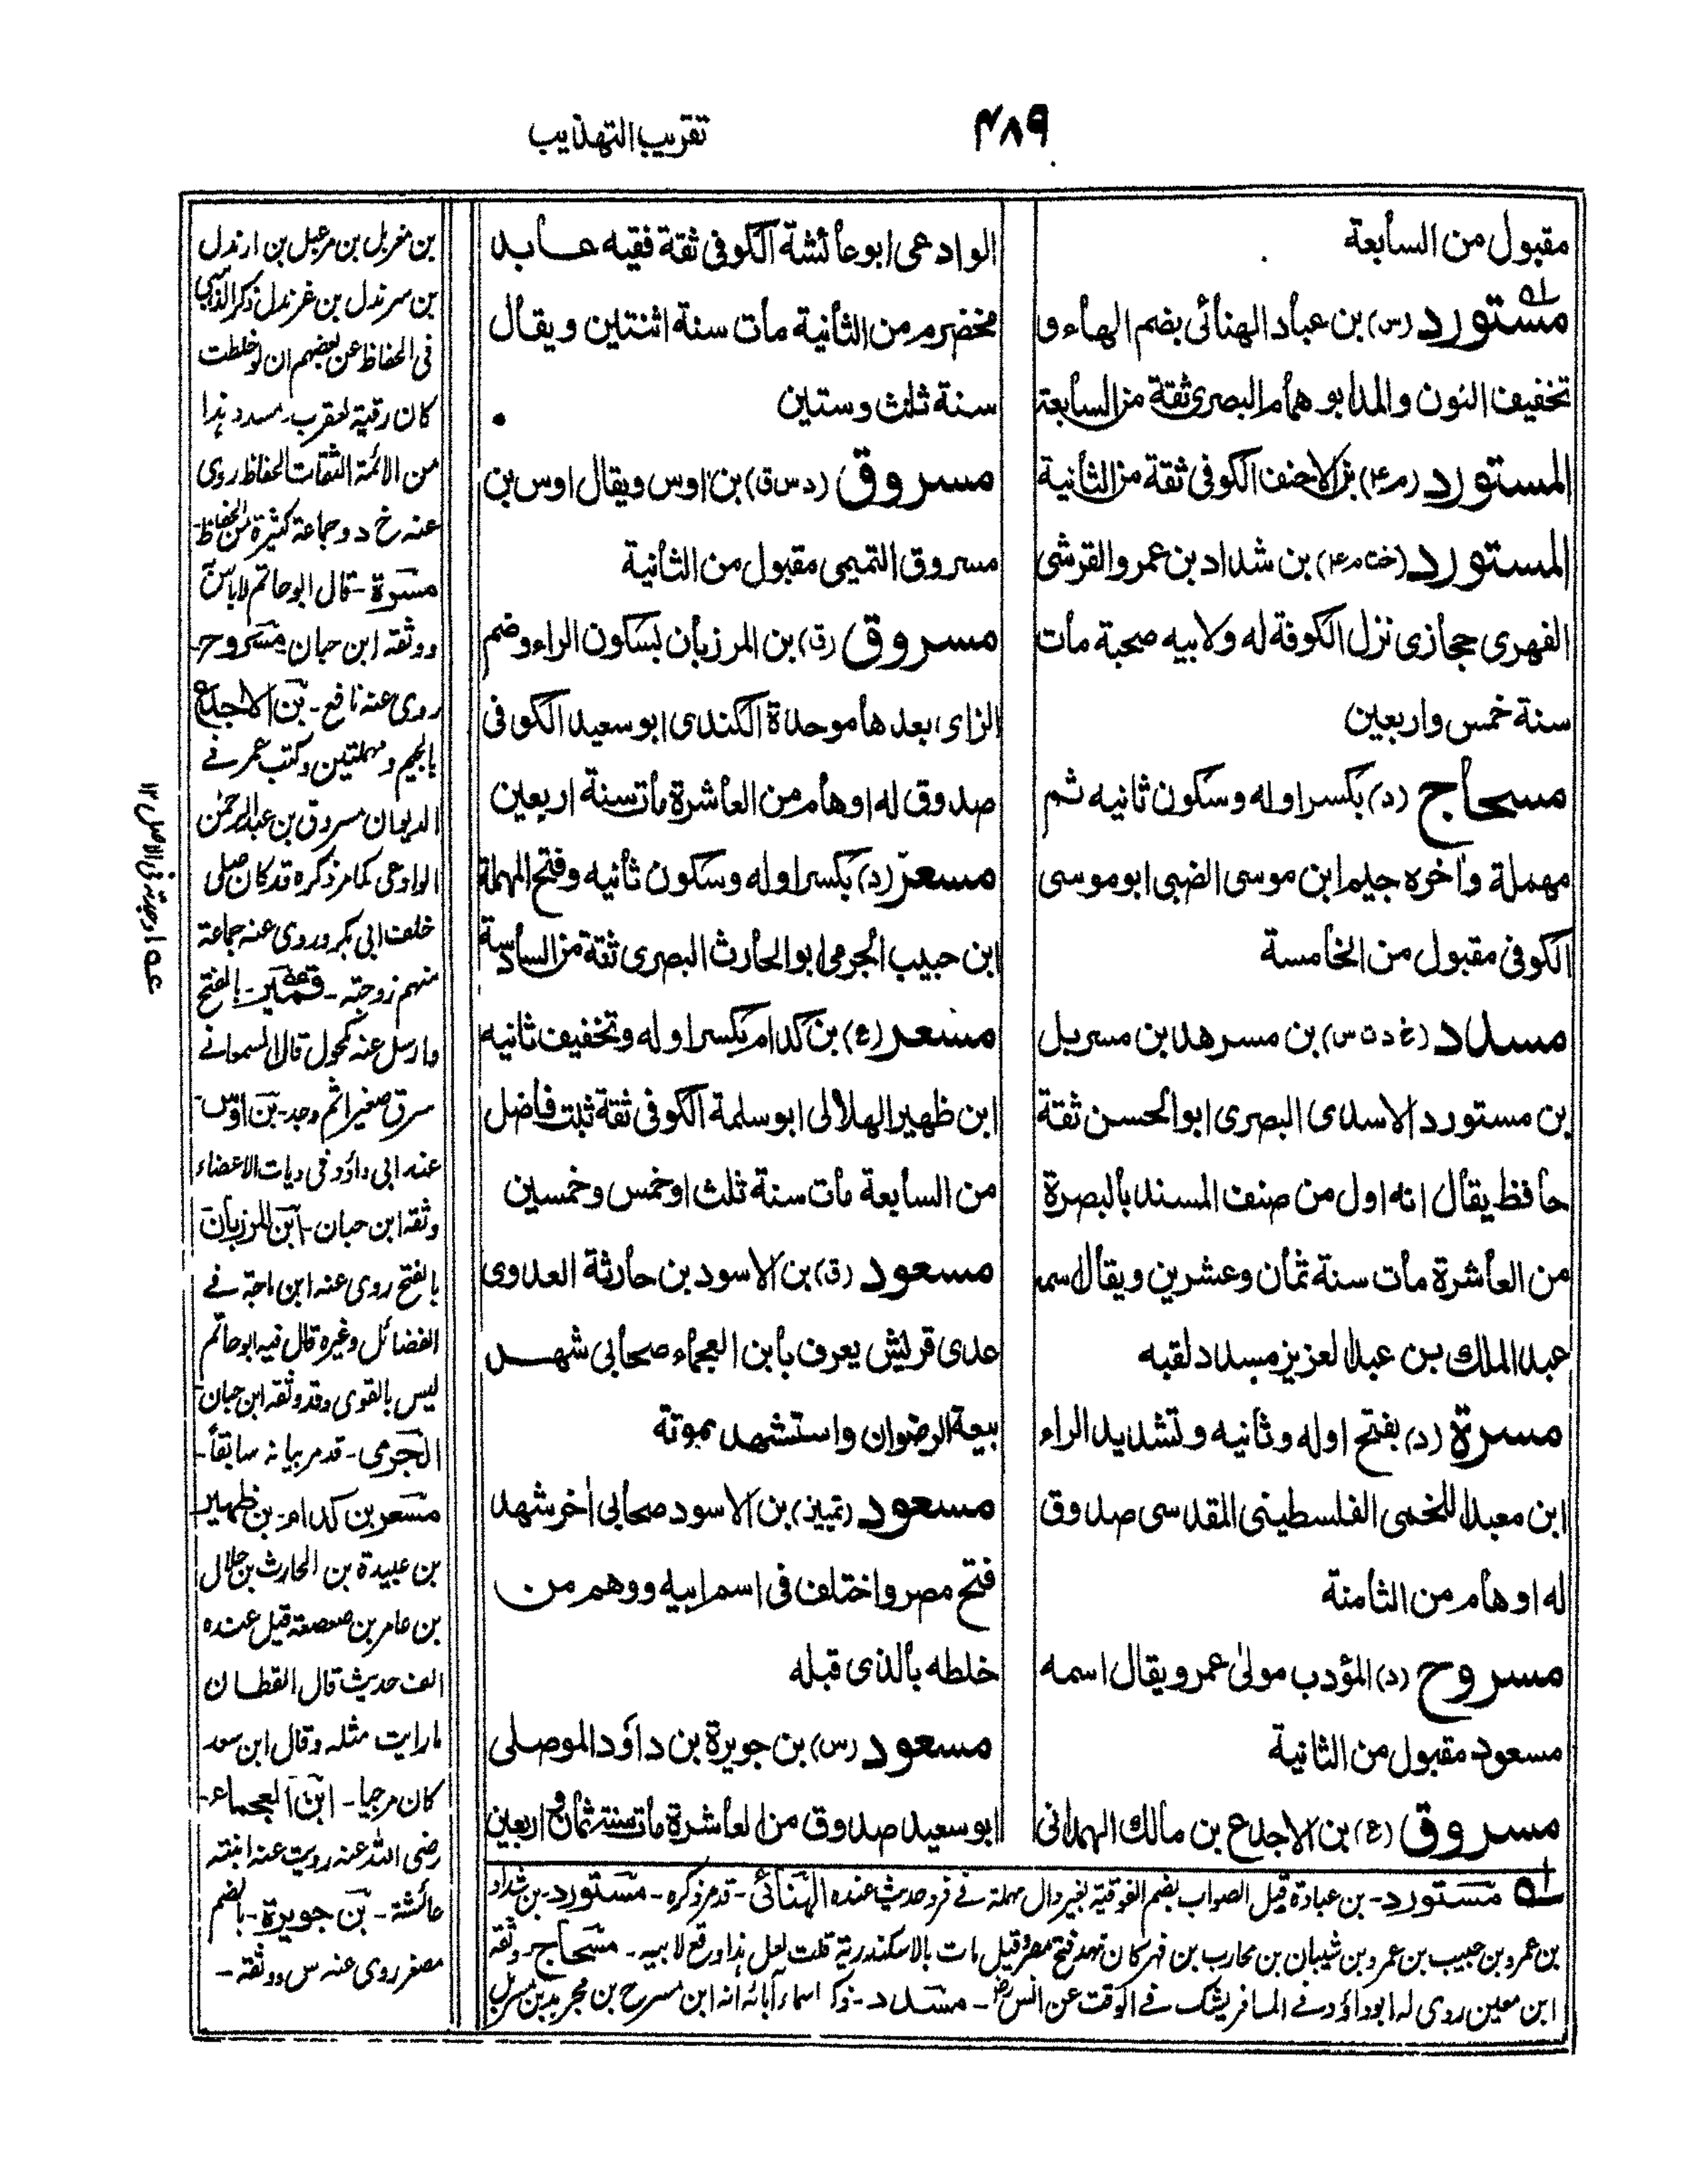 ۴۸۹
تقريب التهذيب
مقبول من السابعة
مستورد (س) بن عباد الهنائى بضم الهاء و
تخفيف النون والمد ابو همام البصرى ثقة من السابعة
المستورد (م۴) بن الاحنف الكوفى ثقة من الثانية
المستورد (خت م۴) بن شداد بن عمرو القرشى
الفهرى حجازى نزل الكوفة له ولابيه صحبة مات
سنة خمس واربعين
مسحاج (د) بكسر اوله وسكون ثانيه ثم
مهملة واخره جيم ابن موسى الضبى ابو موسى
الكوفى مقبول من الخامسة
مسدد (خ د ت س) بن مسرهد بن مسربل
بن مستورد الاسدى البصرى ابو الحسن ثقة
حافظ يقال انه اول من صنف المسند بالبصرة
من العاشرة مات سنة ثمان وعشرين ويقال اسمه
عبد الملك بن عبد العزيز مسدد لقبه
مسرة (د) بفتح اوله وثانيه وتشديد الراء
ابن معبد اللخمى الفلسطينى المقدسى صدوق
له اوهام من الثامنة
مسروح (د) المؤدب مولى عمرو يقال اسمه
مسعود مقبول من الثانية
مسروق (ع) بن الاجدع بن مالك الهمدانى
الوادعى ابو عائشة الكوفى ثقة فقيه عابد
مخضرم من الثانية مات سنة اثنتين ويقال
سنة ثلث وستين
مسروق (د س ق) بن اوس ويقال اوس بن
مسروق التميمى مقبول من الثانية
مسروق (ق) بن المرزبان بسكون الراء وضم
الزاى بعدها موحدة الكندى ابو سعيد الكوفى
صدوق له اوهام من العاشرة مات سنة اربعين
مسعر (د) بكسر اوله وسكون ثانيه وفتح المهملة
ابن حبيب الجرمى ابو الحارث البصرى ثقة من السادسة
مسعر (ع) بن كدام بكسر اوله وتخفيف ثانيه
ابن ظهير الهلالى ابو سلمة الكوفى ثقة ثبت فاضل
من السابعة مات سنة ثلث او خمس وخمسين
مسعود (ق) بن الاسود بن حارثة العدوى
عدى قريش يعرف بابن العجماء صحابى شهد
بيعة الرضوان واستشهد بموتة
مسعود (تمييز) بن الاسود صحابى اخر شهد
فتح مصر واختلف فى اسم ابيه ووهم من
خلطه بالذى قبله
مسعود (س) بن جويرة بن داؤد الموصلى
ابو سعيد صدوق من العاشرة مات سنة ثمان واربعين
بن مغربل بن مرعبل بن ارندل
بن سرندل بن غرندل ذكر الذهبى
فى الحفاظ عن بعضهم ان لو خلطت
كان رقية لعقرب - مسدد هذا
من الائمة الثقات الحفاظ روى
عنه خ د وجماعة كثيرة من الحفاظ -
مسرة - قال ابو حاتم لا باس به
ووثقه ابن حبان مسروح -
روى عنه نافع - بن الاجدع
بالجيم ومهملتين وكتب عمر فى
الديوان مسروق بن عبد الرحمن
الوادعى كما مر ذكره قد كان صلى
خلف ابى بكر وروى عنه جماعة
منهم زوجته - قمير - بالفتح
وارسل عنه مكحول قال السمعانى
سرق صغيرا ثم وجد - بن اوس -
عنه ابى داؤد فى ديات الاعضاء
وثقه ابن حبان - ابن المرزبان
بالفتح روى عنه ابن ماجة فى
الفضائل وغيره قال فيه ابو حاتم
ليس بالقوى وقد وثقه ابن حبان -
الجرمى - قد مر بيانه سابقا -
مسعر بن كدام بن ظهير
بن عبيدة بن الحارث بن هلال
بن عامر بن صعصعة قيل عنده
الف حديث قال القطان
ما رايت مثله وقال ابن سعد
كان مرجيا - ابن العجماء -
رضى الله عنه رويت عنه ابنته
عائشة - بن جويرة - بالضم
مصغر روى عنه س ووثقه -
مستورد - بن عبادة قيل الصواب بضم الفوقية بغير دال مهملة فى فرد حديث عنده الهنائى - قد مر ذكره - مستورد - بن شداد
بن عمرو بن حبيب بن عمرو بن شيبان بن محارب بن فهر كان شهد فتح مصر وقيل مات بالاسكندرية قلت لعل هذا وقع لابيه - مسحاج - وثقه
ابن معين روى له ابو داؤد فى المسافر يشك فى الوقت عن انس رض - مسدد - ذكر اسماء آبائه انه ابن مسرهد بن مجرهد بن مسربل